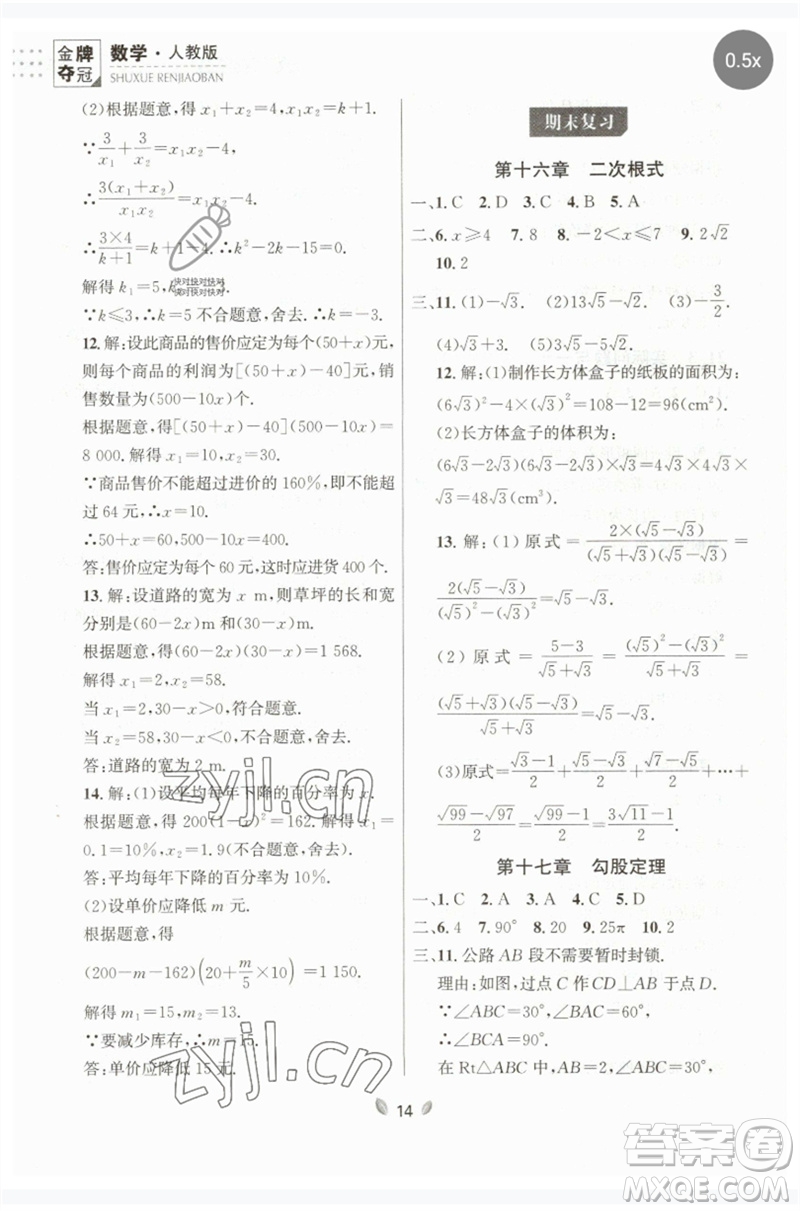 金牌夺冠
数学·人教版
SHUXUE RENJIAOBAN
0.5x
(2)根据题意，得 x₁+x₂=4，x₁x₂=k+1.
∵3/x₁+3/x₂=x₁x₂-4，
∴3(x₁+x₂)/x₁x₂=x₁x₂-4.
∴3×4/(k+1)=k+1-4.∴k²-2k-15=0.
解得 k₁=5，
快对快对快对
快对快对快对
∵k≤3，∴k=5 不合题意，舍去.∴k=-3.
12. 解：设此商品的售价应定为每个(50+x)元，
则每个商品的利润为[(50+x)-40]元，销
售数量为(500-10x)个.
根据题意，得[(50+x)-40](500-10x)=
8 000. 解得 x₁=10，x₂=30.
∵商品售价不能超过进价的 160%，即不能超
过 64 元，∴x=10.
∴50+x=60，500-10x=400.
答：售价应定为每个 60 元，这时应进货 400 个.
13. 解：设道路的宽为 x m，则草坪的长和宽
分别是(60-2x)m 和(30-x)m.
根据题意，得(60-2x)(30-x)=1 568.
解得 x₁=2，x₂=58.
当 x₁=2，30-x>0，符合题意.
当 x₂=58，30-x<0，不合题意，舍去.
答：道路的宽为 2 m.
14. 解：(1)设平均每年下降的百分率为 x.
根据题意，得 200(1-x)²=162. 解得 x₁=
0.1=10%，x₂=1.9(不合题意，舍去).
答：平均每年下降的百分率为 10%.
(2)设单价应降低 m 元.
根据题意，得
(200-m-162)(20+m/5×10)=1 150.
解得 m₁=15，m₂=13.
∵要减少库存，∴m=15.
答：单价应降低 15 元.
期末复习
第十六章　二次根式
一、1. C　2. D　3. C　4. B　5. A
二、6. x≥4　7. 8　8. -2<x≤7　9. 2√2
10. 2
三、11. (1)-√3.　(2)13√5-5√2.　(3)-3/2.
(4)√3+3.　(5)1-√2.
12. 解：(1)制作长方体盒子的纸板的面积为：
(6√3)²-4×(√3)²=108-12=96(cm²).
(2)长方体盒子的体积为：
(6√3-2√3)(6√3-2√3)×√3=4√3×4√3×
√3=48√3(cm³).
13. 解：(1) 原式=2×(√5-√3)/(√5+√3)(√5-√3)=
2(√5-√3)/((√5)²-(√3)²)=√5-√3.
(2) 原式=(5-3)/(√5+√3)=((√5)²-(√3)²)/(√5+√3)=
(√5+√3)(√5-√3)/(√5+√3)=√5-√3.
(3)原式=(√3-1)/2+(√5-√3)/2+(√7-√5)/2+…+
(√99-√97)/2=(√99-1)/2=(3√11-1)/2.
第十七章　勾股定理
一、1. C　2. A　3. A　4. C　5. D
二、6. 4　7. 90°　8. 20　9. 25π　10. 2
三、11. 公路 AB 段不需要暂时封锁.
理由：如图，过点 C 作 CD⊥AB 于点 D.
∵∠ABC=30°，∠BAC=60°，
∴∠BCA=90°.
在 Rt△ABC 中，AB=2，∠ABC=30°，
14
zyjl.cn
zyjl.cn
答案圈
MXQE.COM